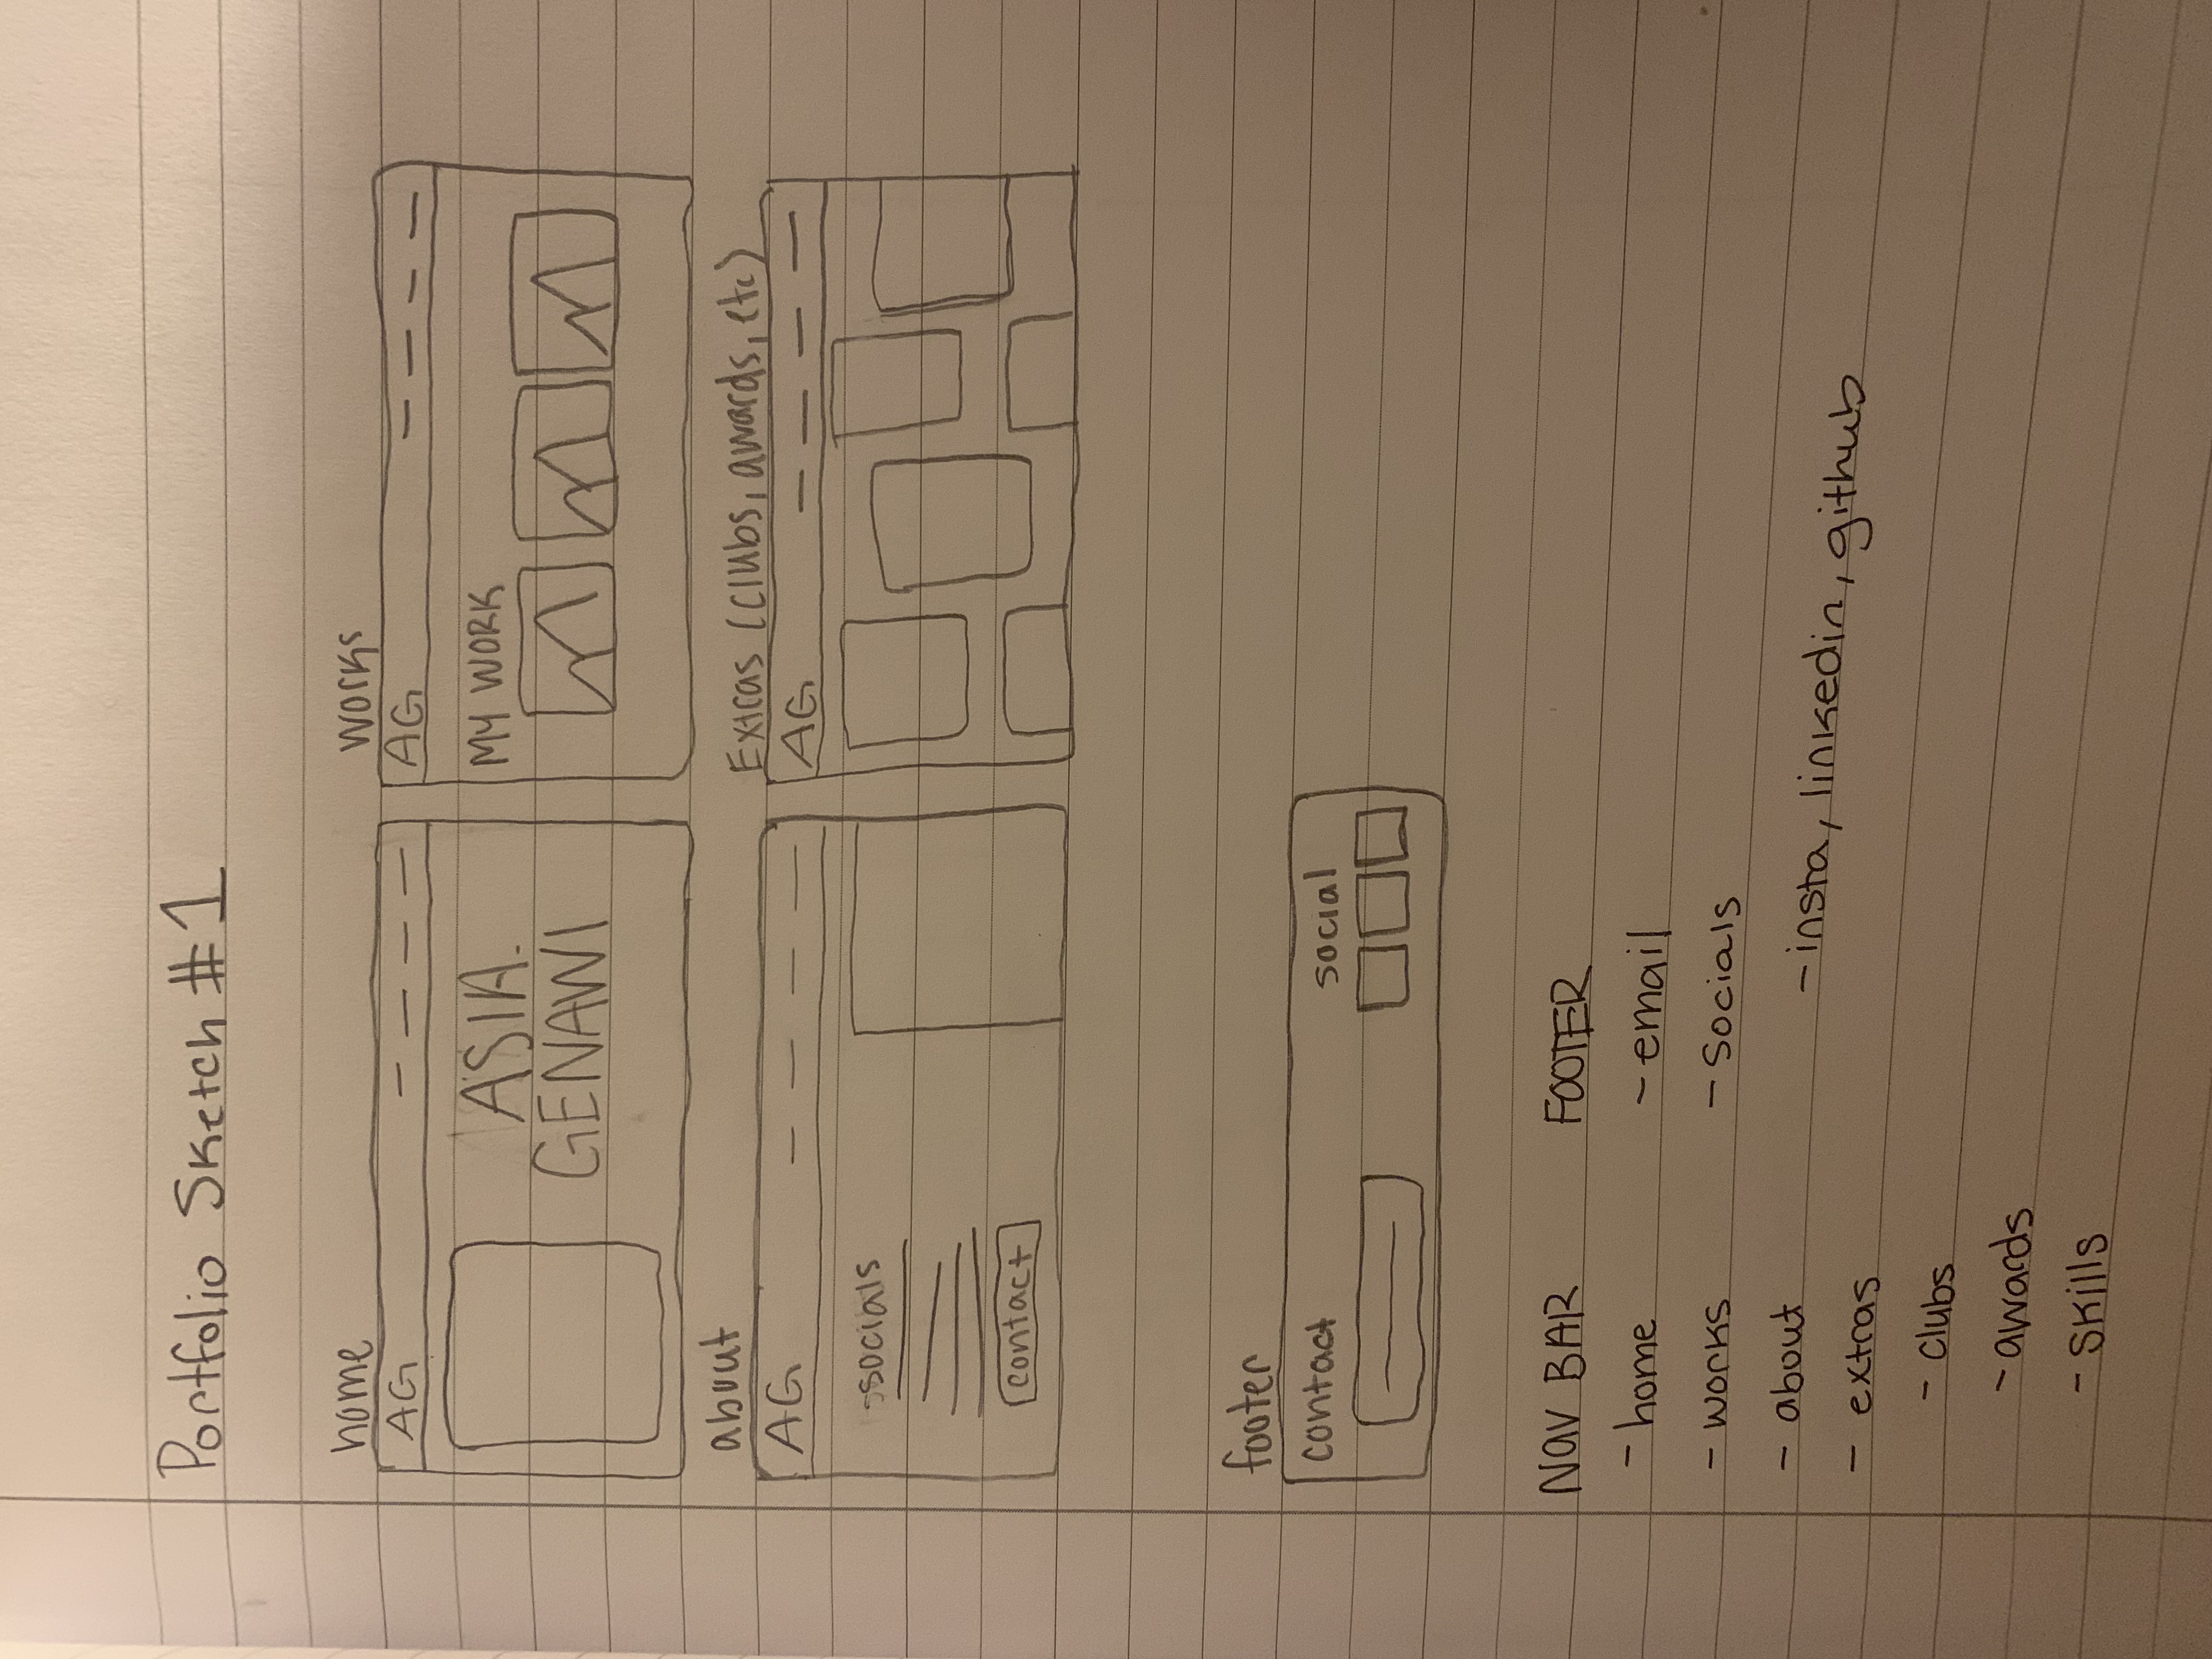 Portfolio Sketch #1
home
AG
ASIA
GENAWI
works
AG
MY WORK
about
AG
socials
contact
Extras (clubs, awards, etc)
AG
footer
contact
social
NAV BAR
- home
- works
- about
- extras
- clubs
- awards
- skills
FOOTER
- email
- socials
- insta, linkedin, github